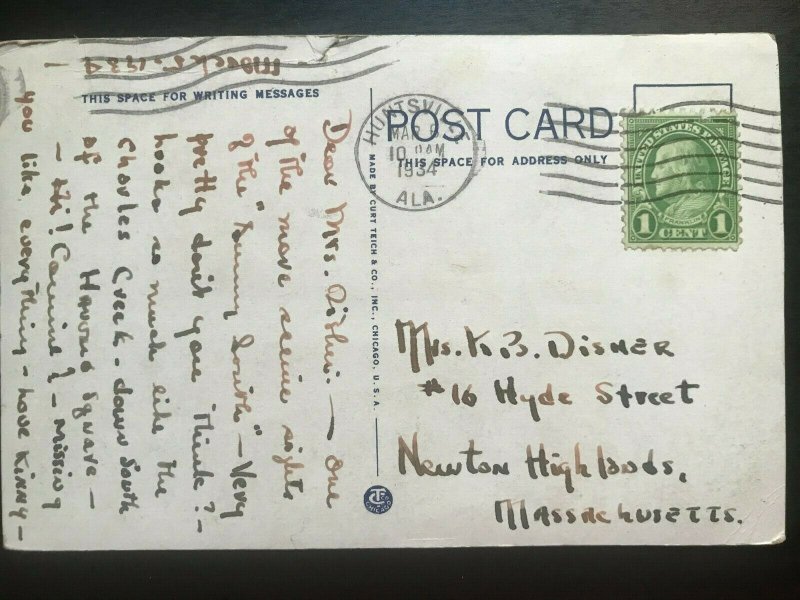 March 5 - 1934 -
THIS SPACE FOR WRITING MESSAGES
Dear Mrs. Disher: - one
of the more scenic sights
of the "Sunny South" - Very
pretty don't you think? -
looks so much like the
Charles Creek - down South
of the Square -
- Hi! - missing
you like everything - love Kinny -
MADE BY CURT TEICH & CO., INC., CHICAGO, U.S.A.
CTC
CHICAGO
HUNTSVILLE
MAR 5
10 AM
1934
ALA.
POST CARD
THIS SPACE FOR ADDRESS ONLY
UNITED STATES POSTAGE
FRANKLIN
1 CENT 1
Mrs. K. B. Disher
#16 Hyde Street
Newton Highlands,
Massachusetts.